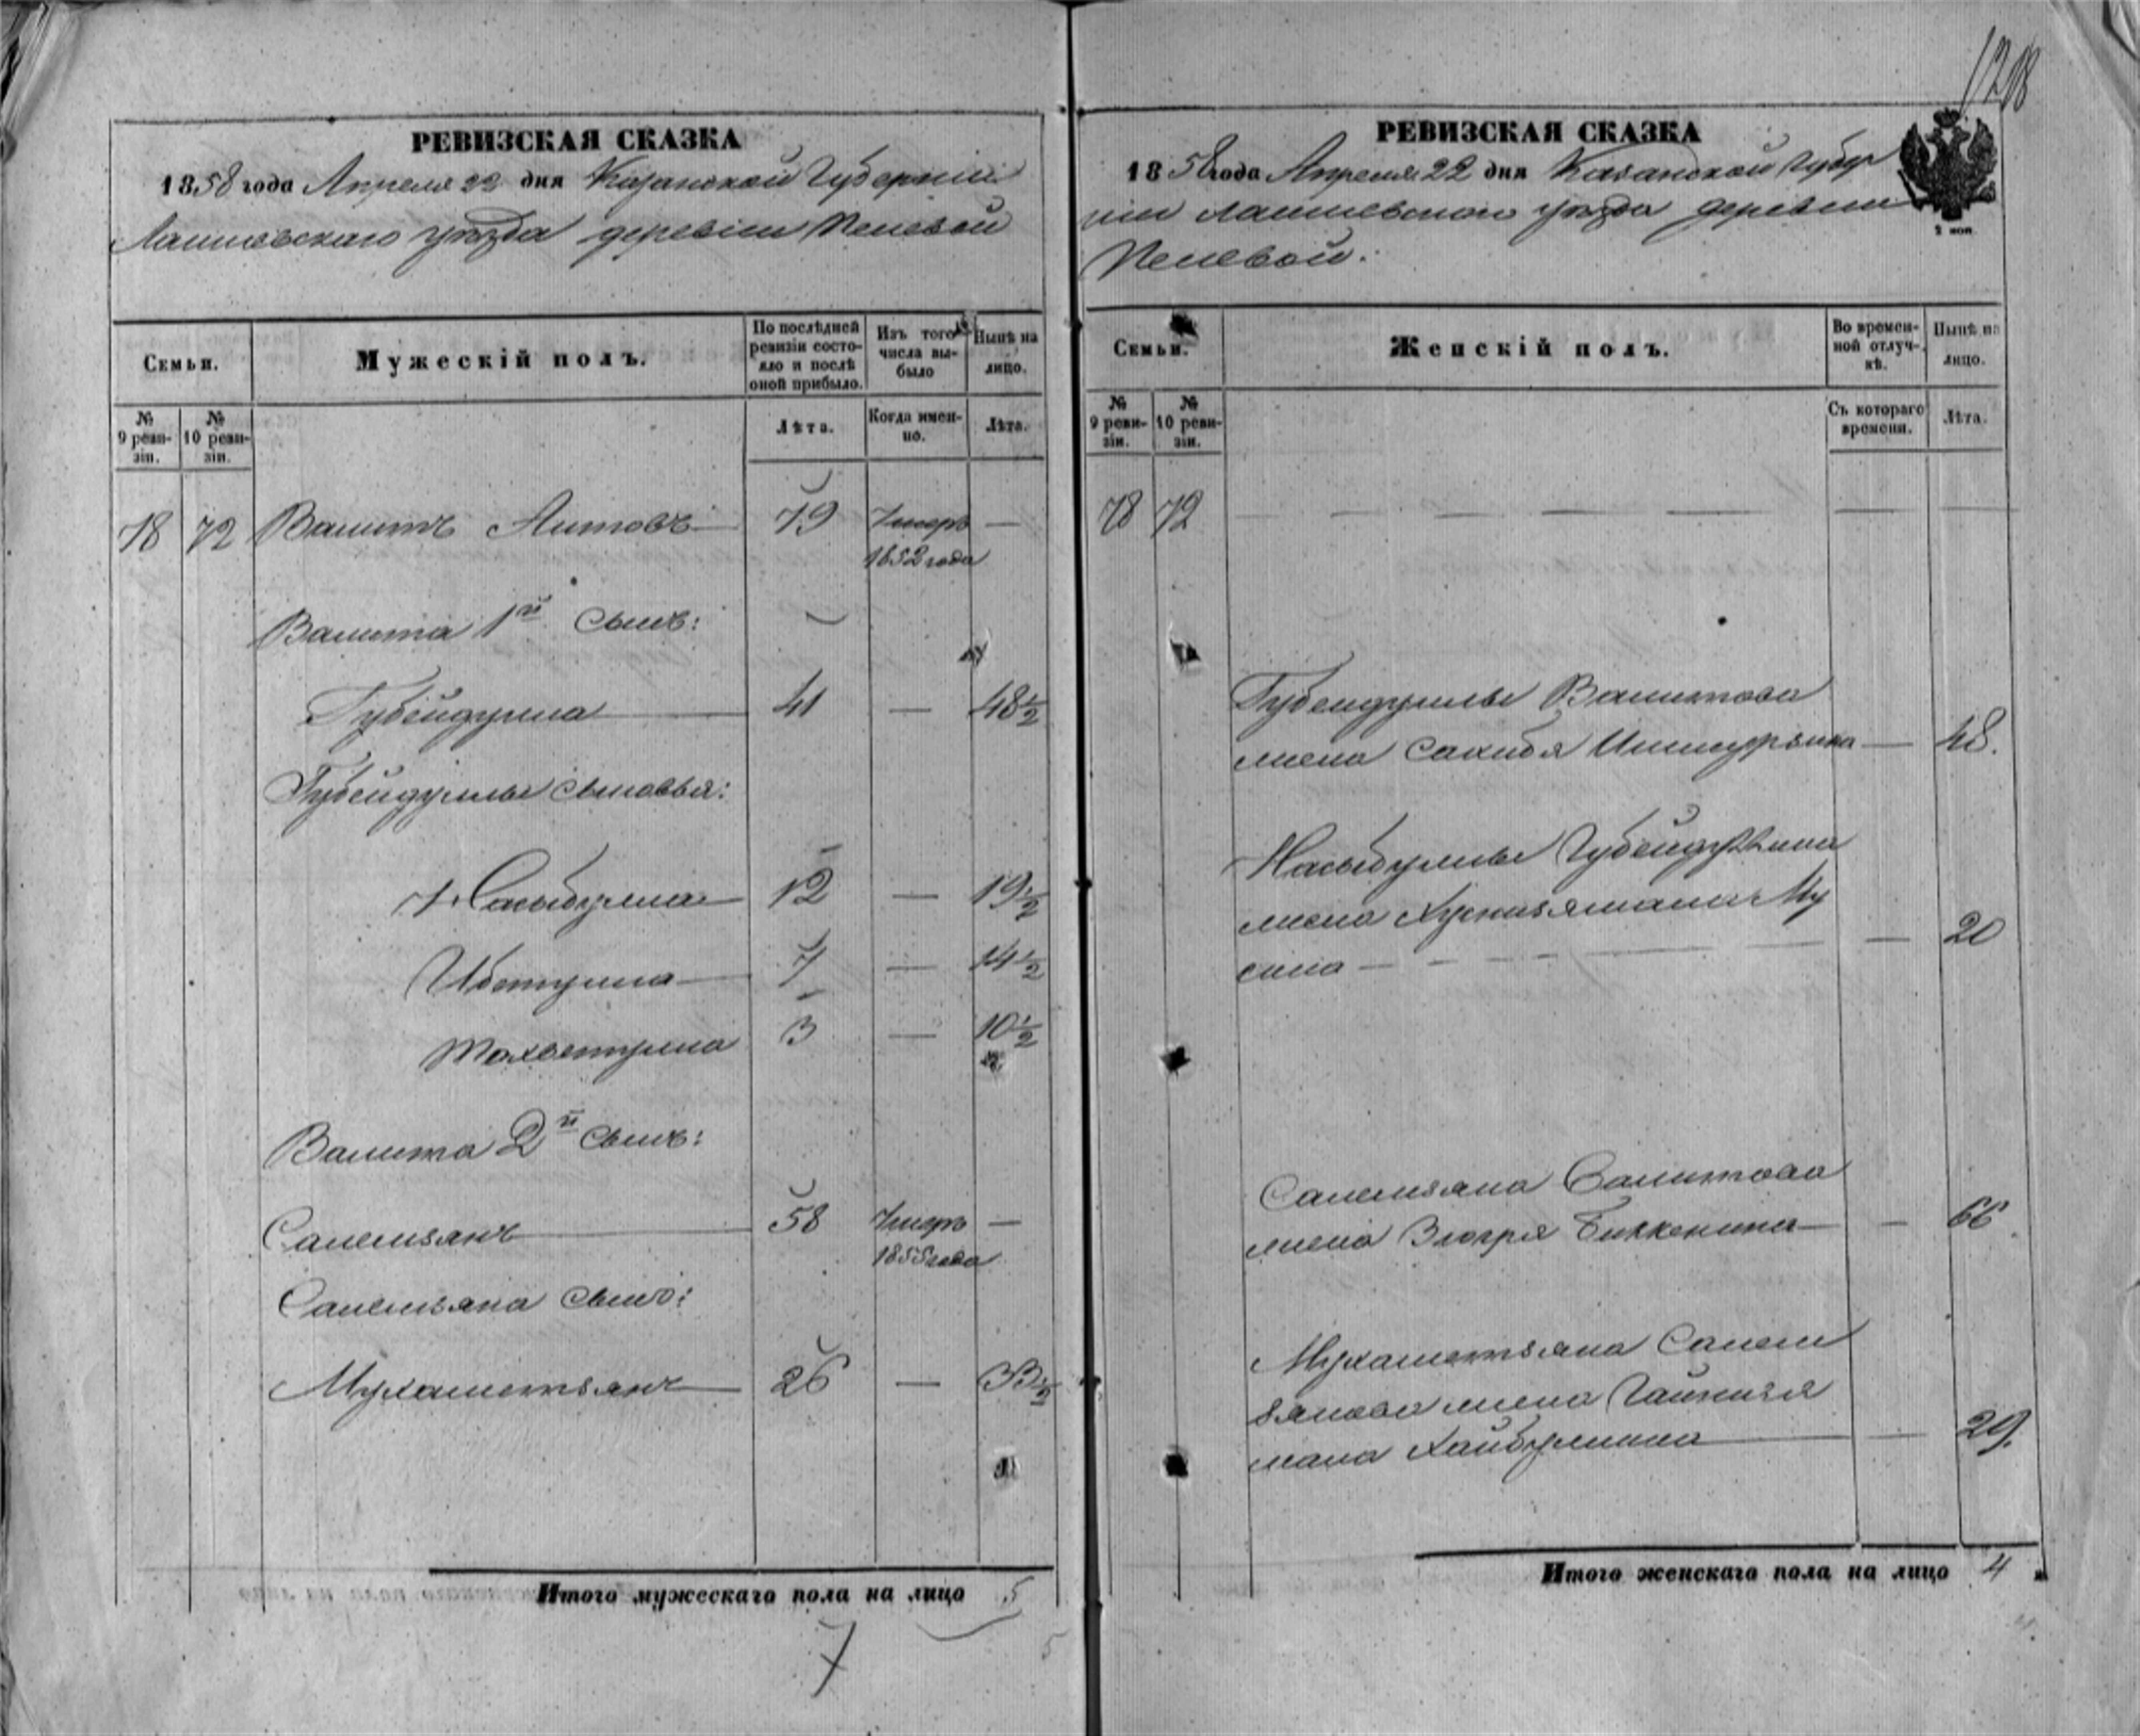 1218
РЕВИЗСКАЯ СКАЗКА
1858 года Апреля 22 дня Казанской Губернiи
Лаишевскаго уѣзда деревни
Семьи.
Мужескiй полъ.
По послѣдней ревизiи состояло и послѣ оной прибыло.
Изъ того числа выбыло
Нынѣ на лицо.
№ 9 ревизiи.
№ 10 ревизiи.
Лѣта.
Когда именно.
Лѣта.
78 72 Валитъ Аитовъ 79 Умеръ 1852 года —
Валита 1й сынъ:
Губейдулла 41 — 48½
Губейдуллы сыновья:
Насыбулла 12 — 19½
Ибетулла 7 — 14½
3 — 10½
Валита 2й сынъ:
Салемзянъ 58 Умеръ 1855 года —
Салемзяна сынъ:
Мухаметзянъ 26 — 33½
Итого мужескаго пола на лицо 5
7
5
РЕВИЗСКАЯ СКАЗКА
1858 года Апреля 22 дня Казанской Губер
нiи Лаишевскаго уѣзда деревни
2 коп.
Семьи.
Женскiй полъ.
Во временной отлучкѣ.
Нынѣ на лицо.
№ 9 ревизiи.
№ 10 ревизiи.
Съ котораго времени.
Лѣта.
78 72 —
Губейдуллы Валитова
жена Сахибя — 48.
Насыбуллы Губейдуллина
жена Му
сина — 20
Салемзяна Валитова
жена Зюгря Биккенина — 66
Мухаметзяна Салем
зянова жена Гайнизя
мала Хайбуллина — 29.
Итого женскаго пола на лицо 4